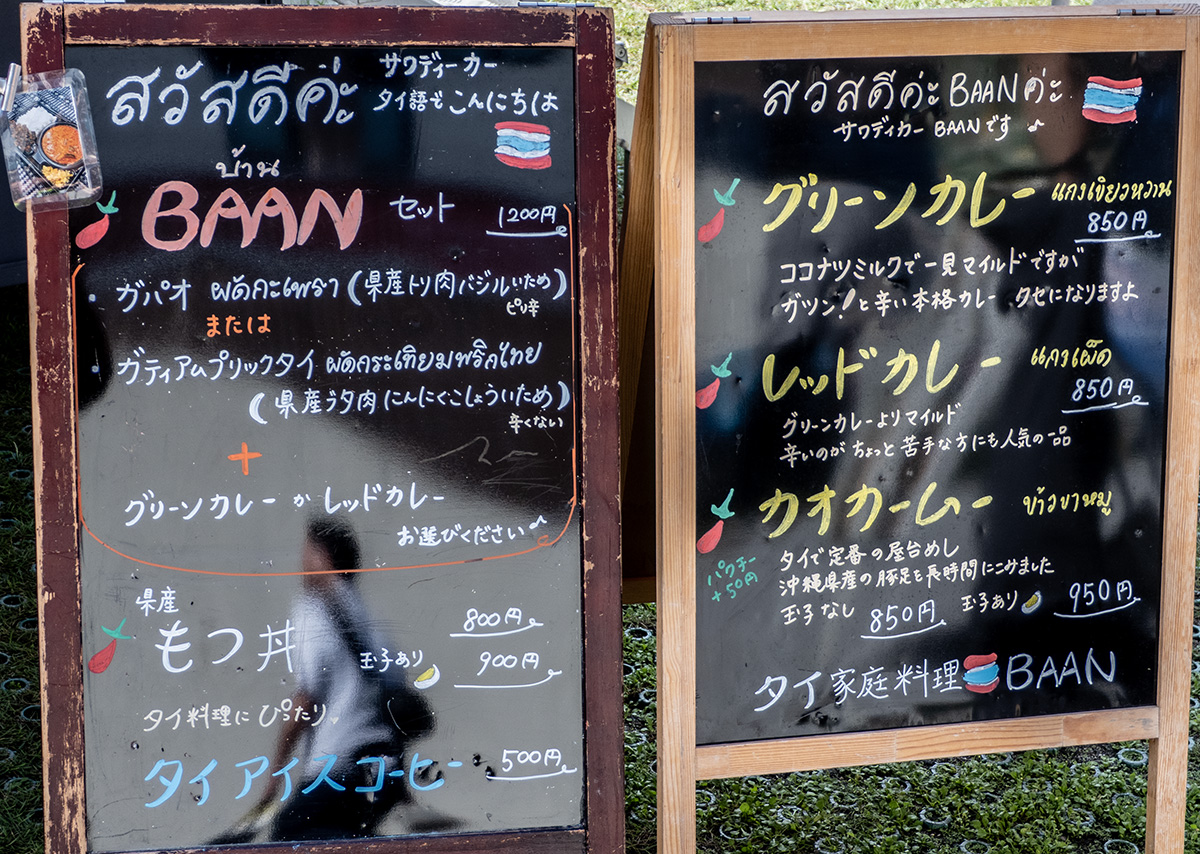 สวัสดีค่ะ サワディーカー
タイ語で こんにちは
บ้าน
BAAN セット 1200円
・ガパオ ผัดกะเพรา (県産トリ肉バジルいため)
ピリ辛
または
・ガティアムプリックタイ ผัดกระเทียมพริกไทย
(県産ブタ肉にんにくこしょういため)
辛くない
+
グリーンカレー か レッドカレー
お選びください♪
県産
もつ丼 800円
玉子あり 900円
タイ料理に ぴったり
タイアイスコーヒー 500円
สวัสดีค่ะ BAANค่ะ
サワディカー BAANです♪
グリーンカレー แกงเขียวหวาน
850円
ココナツミルクで一見マイルドですが
ガツン!と辛い本格カレー クセになりますよ
レッドカレー แกงเผ็ด
850円
グリーンカレーよりマイルド
辛いのが ちょっと 苦手な方にも人気の一品
カオカームー ข้าวขาหมู
パクチー
+50円
タイで定番の屋台めし
沖縄県産の豚足を長時間にこみました
玉子なし 850円 玉子あり 950円
タイ家庭料理 BAAN